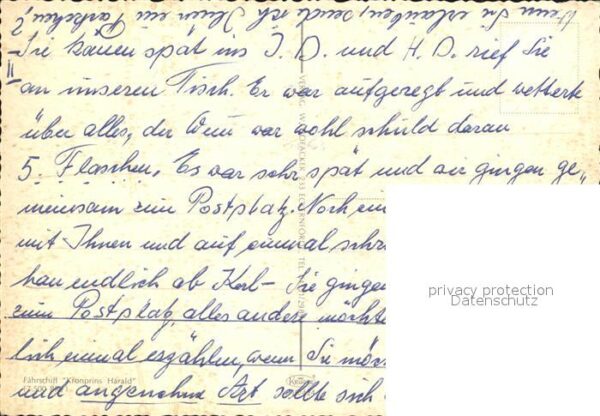 Wenn Sie erlauben, sende ich Ihnen ein Päckchen,?
II
Sie kamen spät ins J. D. und H. D. rief Sie
an unseren Tisch. Er war aufgeregt und wetterte
über alles, der Wein war wohl schuld daran
5. Flaschen. Es war sehr spät und wir gingen ge„
meinsam zum Postplatz. Noch ein
mit Ihnen und auf einmal schr
hau endlich ab Karl - Sie gingen
zum Postplatz, alles andere möchte
lich einmal erzählen, wenn Sie möc
Fährschiff "Kronprins Harald"
und angenehme Art sollte sich
privacy protection
Datenschutz
Krüger